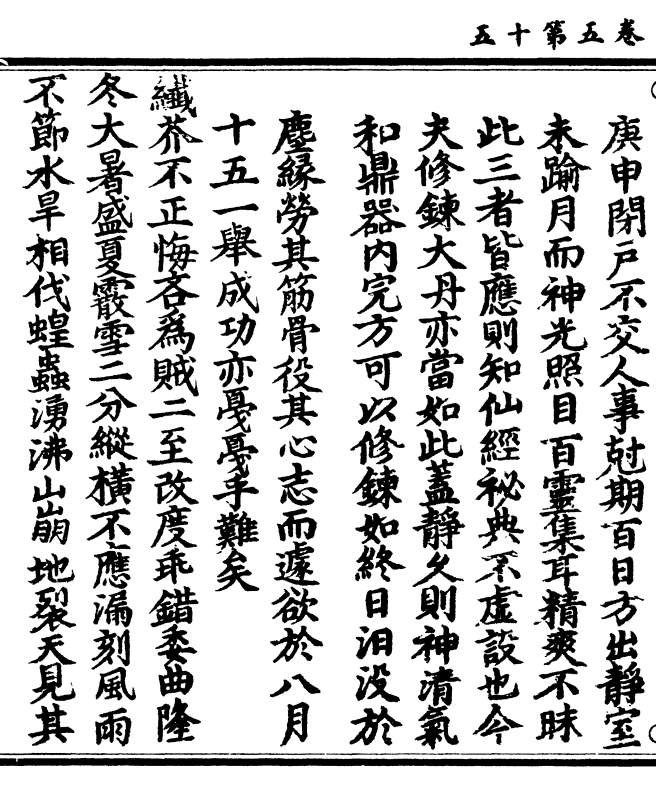 卷五第十五
庚申閉戶不交人事尅期百日方出靜室
未踰月而神光照目百靈集耳精爽不昧
此三者皆應則知仙經祕典不虛設也今
夫修鍊大丹亦當如此蓋靜久則神清氣
和鼎器內完方可以修鍊如終日汩没於
塵緣勞其筋骨役其心志而遽欲於八月
十五一舉成功亦戞戞乎難矣
纖芥不正悔吝為賊二至改度乖錯委曲隆
冬大暑盛夏霰雪二分縱橫不應漏刻風雨
不節水旱相伐蝗蟲湧沸山崩地裂天見其